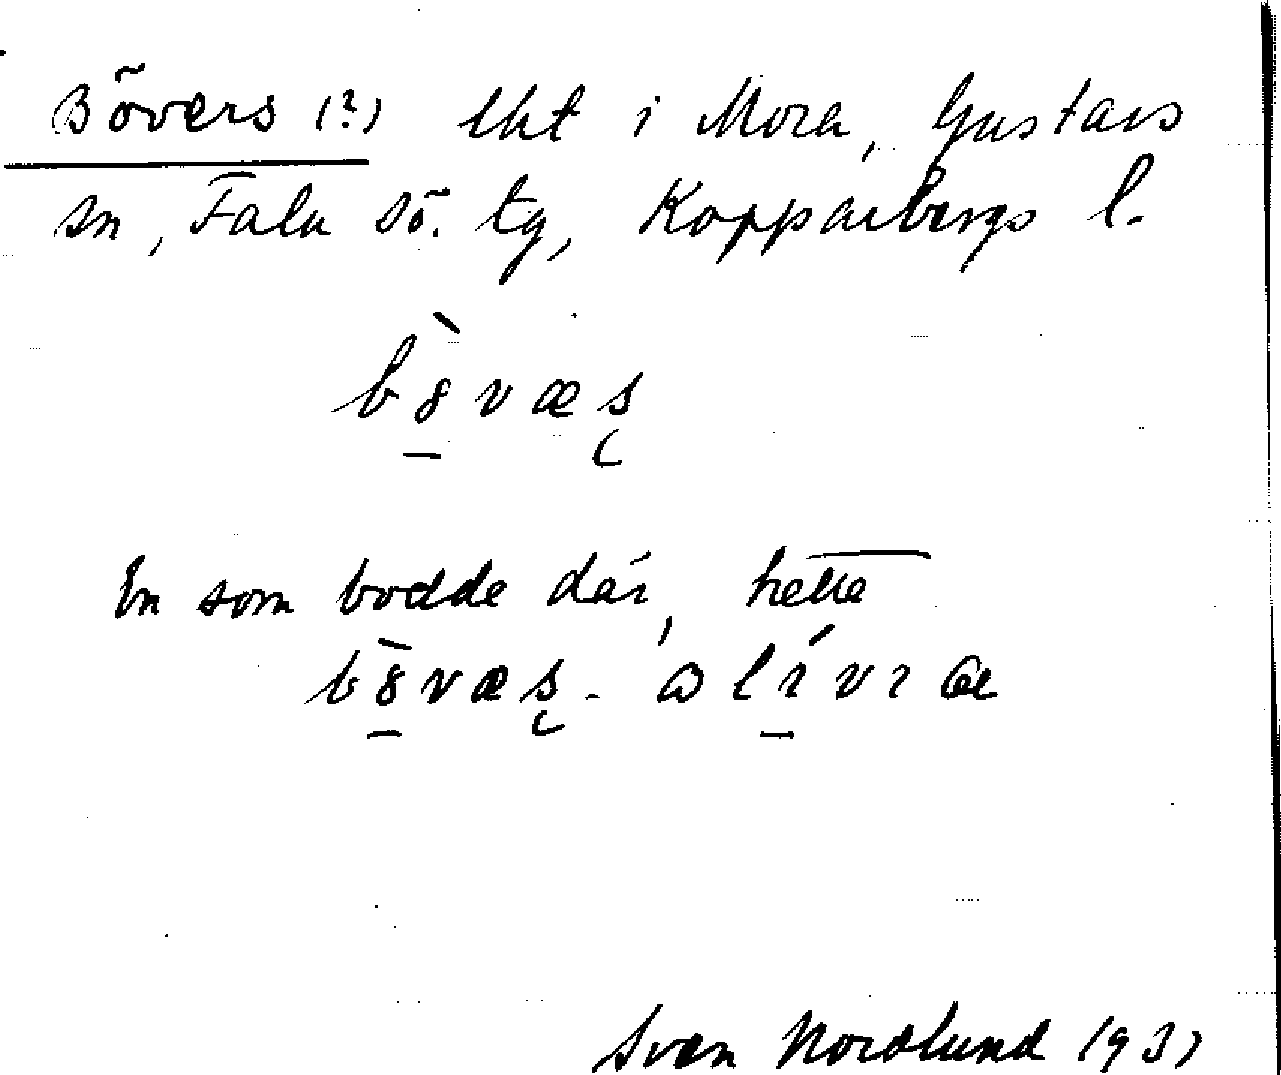 Bövers (?) lht i Mora, Gustavs
sn, Falu sö. tg, Kopparbergs l.
b8̱̀væş
En som bodde där, hette
b8̱̀væş-
Sven Nordlund 1931